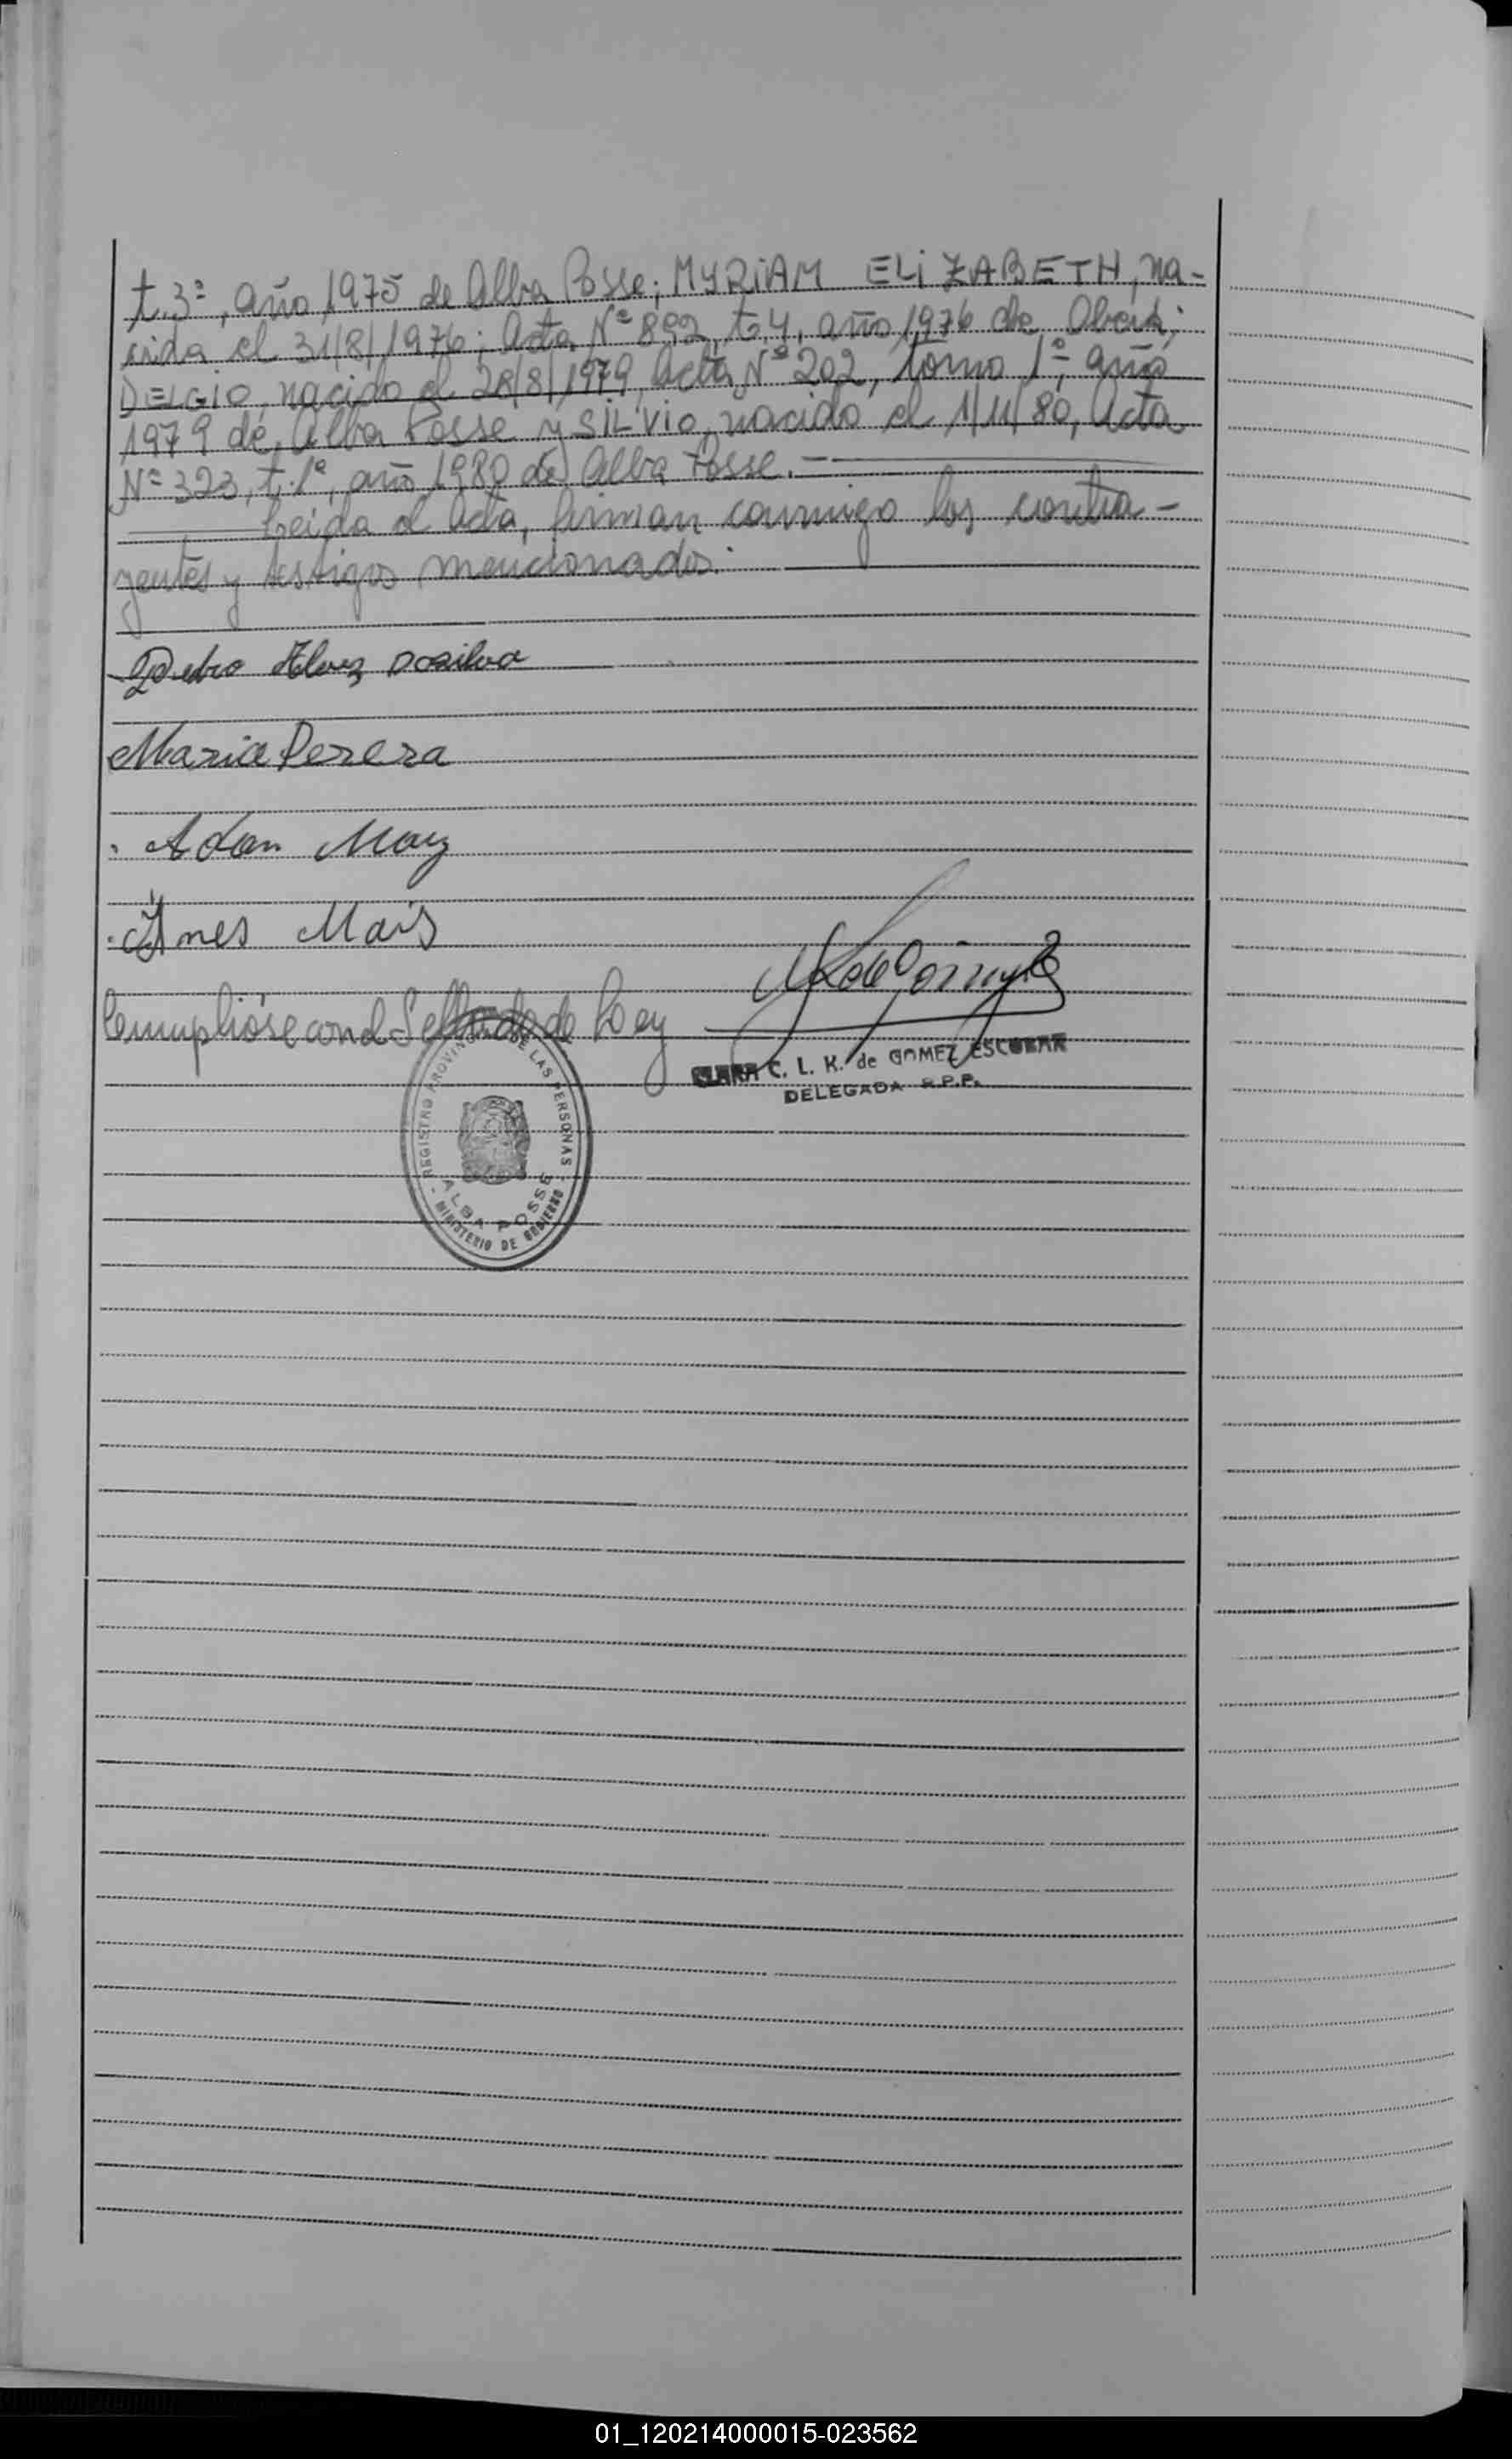 t. 3º, año 1975 de Alba Posse; MYRiAM ELiZABETH, na-
cida el 31/8/1976; Acta Nº 892, t. 4, año 1976 de Oberá;
DELGIO, nacido el 28/8/1979, Acta Nº 202, tomo 1º, año
1979 de Alba Posse y SiLViO, nacido el 1/11/80, Acta
Nº 323, t. 1º, año 1980 de Alba Posse. —
Leida el Acta, firman conmigo los contra-
yentes y testigos mencionados.
Pedro Alvez Dasilva
Maria Perera
Adan
Ines
Cumplióse con el Sellado de Ley
C. L. K. de GOMEZ ESCOBAR
DELEGADA R.P.P.
REGISTRO PROVINCIAL DE LAS PERSONAS
ALBA POSSE
MINISTERIO DE GOBIERNO
01_120214000015-023562